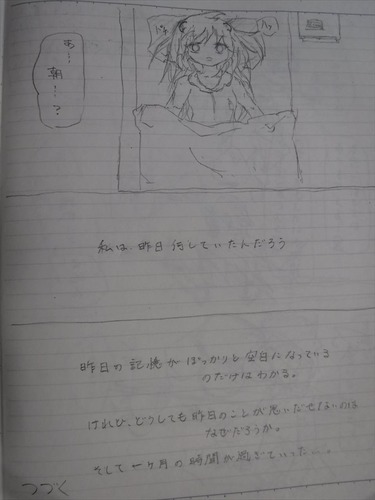 あ…
朝…?
パチ
パチ
私は、昨日何していたんだろう
昨日の記憶がぽっかりと空白になっている
のだけはわかる。
けれど、どうしても昨日のことが思いだせないのは
なぜだろうか。
そして一ヶ月の時間が過ぎていった…。
つづく